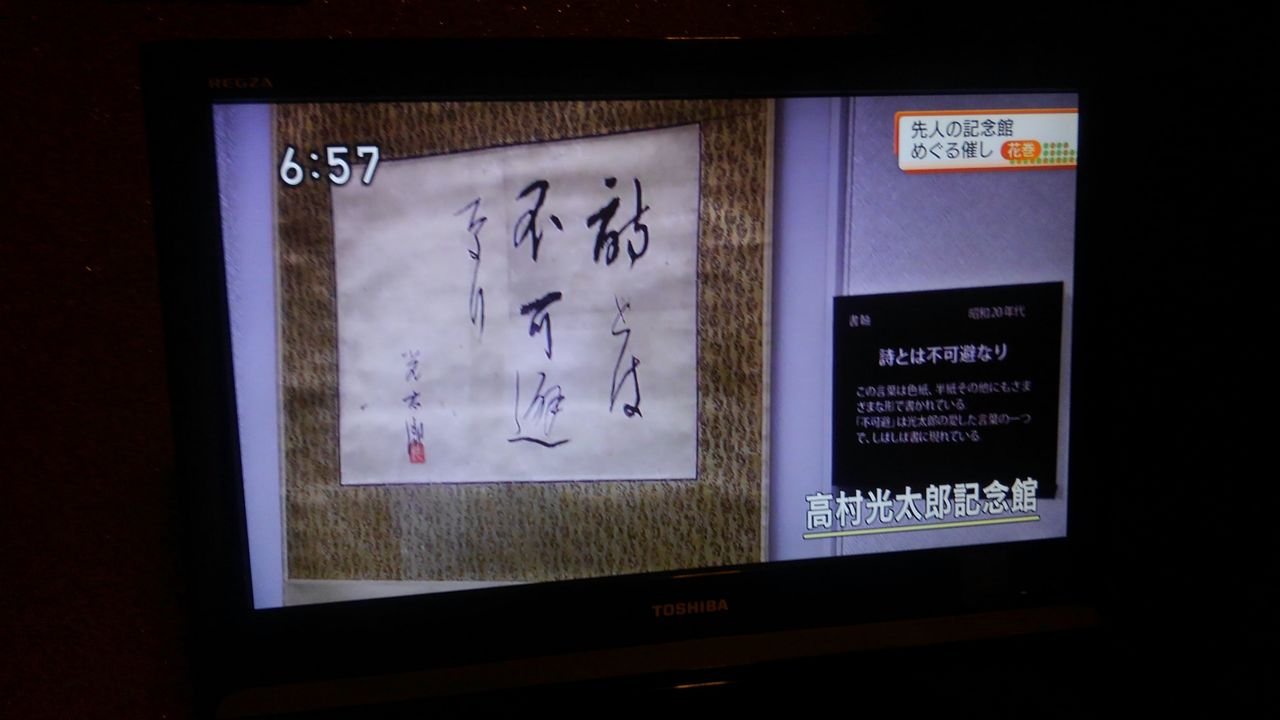 REGZA
6:57
先人の記念館
めぐる催し 花巻
詩とは
不可避
なり
光太郎
書軸 昭和20年代
詩とは不可避なり
この言葉は色紙、半紙その他にもさま
ざまな形で書かれている
「不可避」は光太郎の愛した言葉の一つ
で、しばしば書に現れている
高村光太郎記念館
TOSHIBA